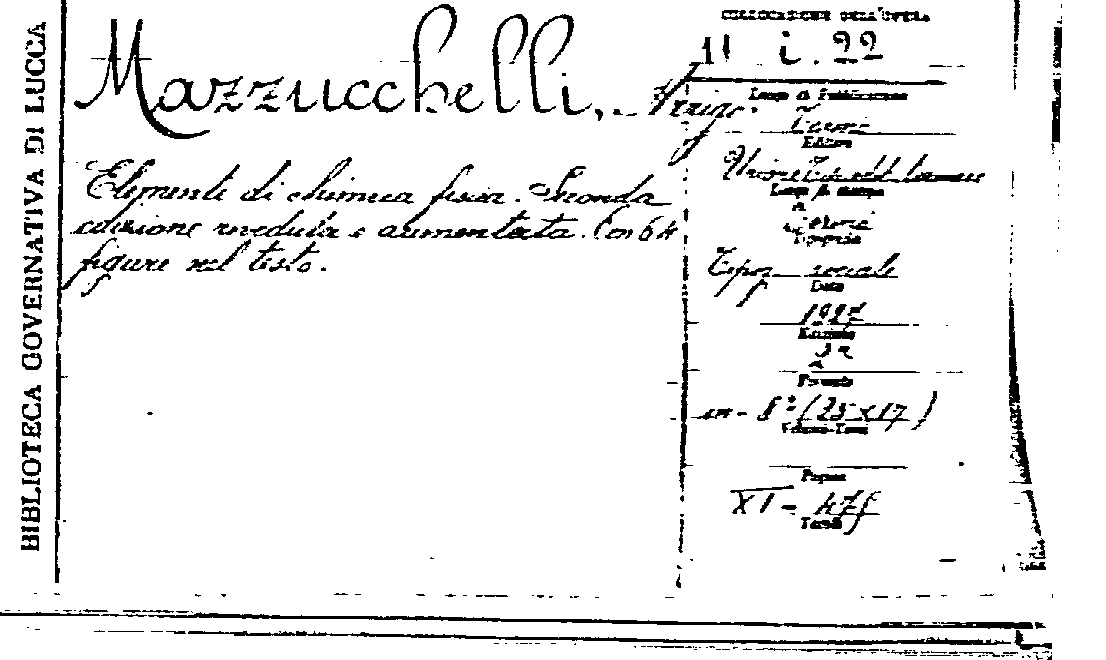 BIBLIOTECA GOVERNATIVA DI LUCCA
Mazzucchelli, Arrigo.
Elementi di chimica fisica. Seconda
edizione riveduta e aumentata. Con 64
figure nel testo.
COLLOCAZIONE DELL'OPERA
11 i. 22
Luogo di Pubblicazione
Torino
Editore
Unione Tip. edit. torinese
Luogo di stampa
Torino
Tipografia
Tipog. sociale
Data
1927
Edizione
2ª
Formato
in - 8° (25 x 17)
Volume-Tomo
Pagine
XI -
Tavole